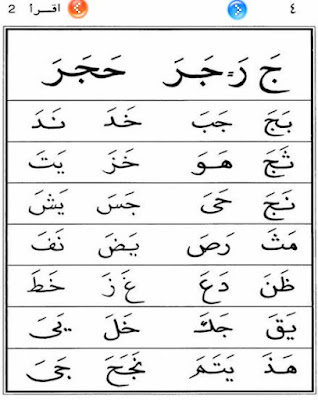 ٤ اقرأ 2
جَ رَ = جَرَ حَجَرَ
بَجَ جَبَ خَدَ نَدَ
ثَجَ هَوَ خَزَ يَتَ
نَجَ حَىَ جَسَ يَشَ
مَثَ رَصَ يَضَ نَفَ
ظَنَ دَعَ غَزَ خَطَ
يَقَ جَكَ خَلَ يَىَ
هَذَ يَتَمَ نَجَحَ جَىَ